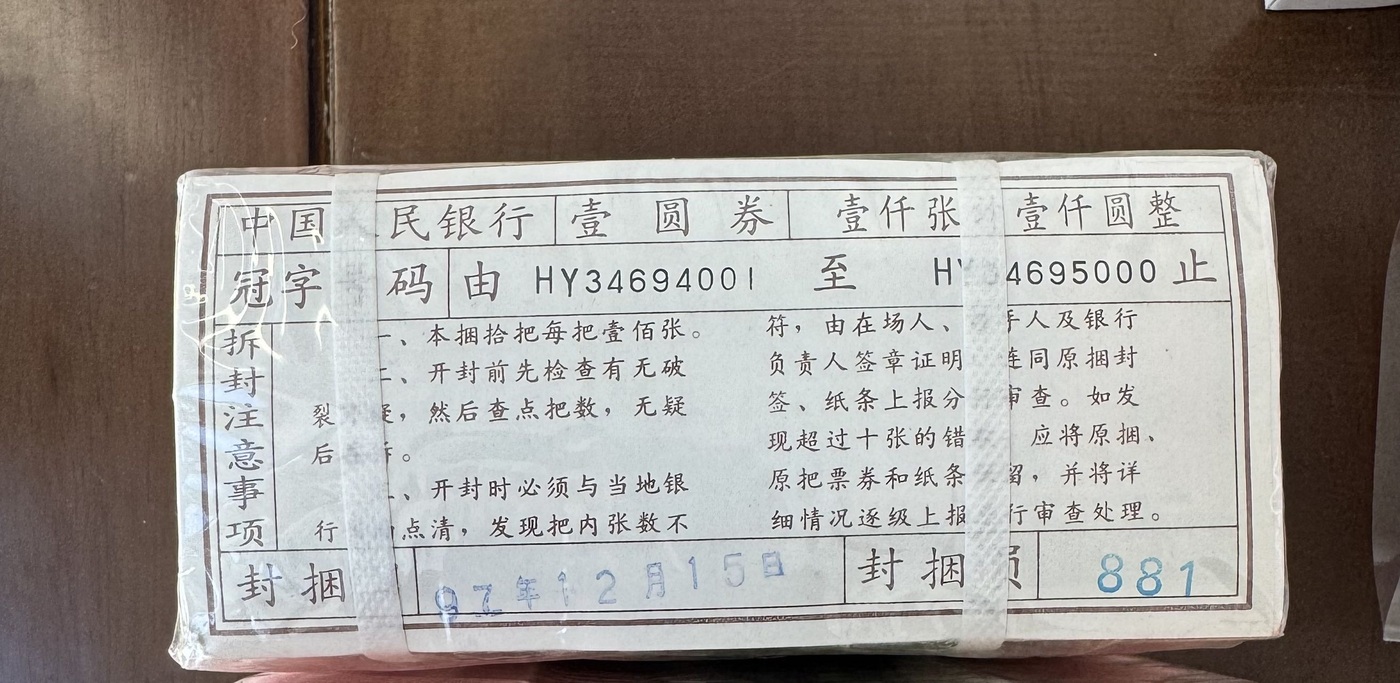 中国 民银行 壹圆券 壹仟张 壹仟圆整
冠字 码 由 HY34694001 至 HY 4695000 止
拆封注意事项
一、本捆拾把每把壹佰张。
二、开封前先检查有无破
裂 疑，然后查点把数，无疑
后 。
、开封时必须与当地银
行 点清，发现把内张数不
符，由在场人、 手人及银行
负责人签章证明 连同原捆封
签、纸条上报分 审查。如发
现超过十张的错 应将原捆、
原把票券和纸条 留，并将详
细情况逐级上报 行审查处理。
封捆 97年12月15日 封捆员 881